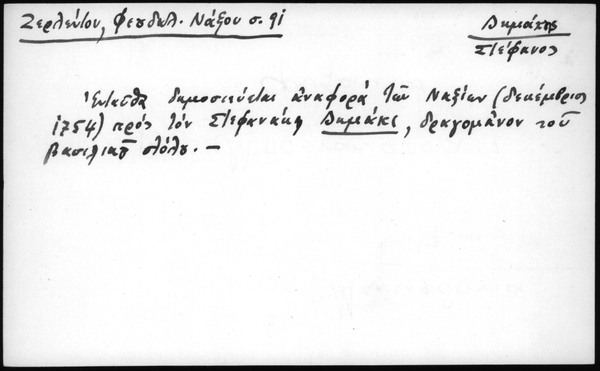 Ζερλέντου, Φεουδαλ. Νάξου σ. 91
Δημάκης
Στέφανος
Ἐνταῦθα δημοσιεύεται ἀναφορά τῶν Ναξίων (δεκέμβριος
1754) πρός τόν Στεφανάκη Δημάκι, δραγομᾶνον τοῦ
βασιλικοῦ στόλου. —